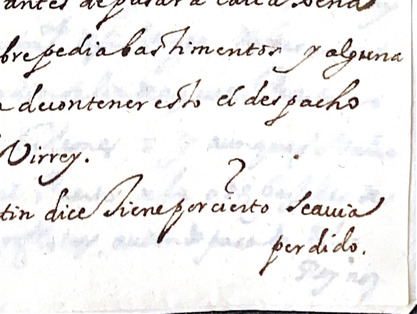 antes de pasar a
bre pedia bastimentos y alguna
a decontener esto el despacho
Virrey.
2
tin dice tiene por cierto seauia
perdido.